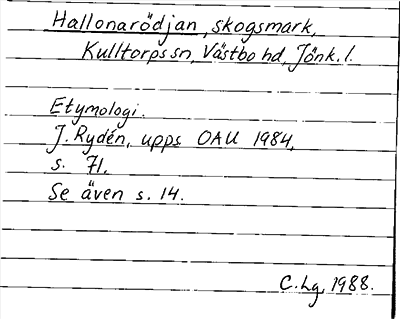 Hallonarödjan, skogsmark,
Kulltorps sn, Västbo hd, Jönk. l.
Etymologi.
J. Rydén, upps OAU 1984,
s. 71.
Se även s. 14.
C. Lg, 1988.